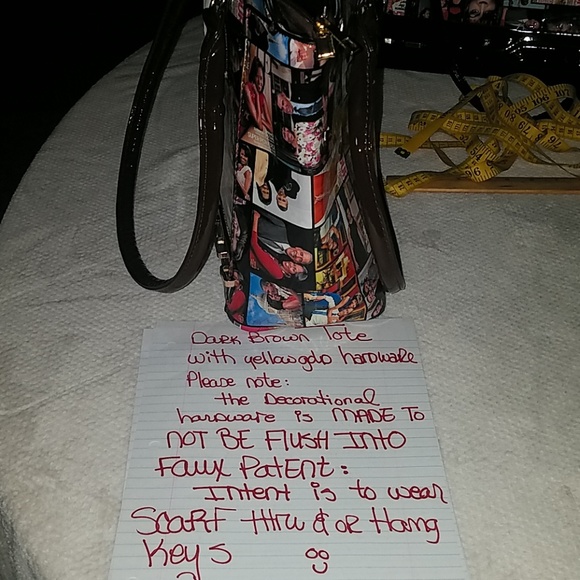 Dark Brown Tote
with yellow gold hardware
Please note:
the Decorational
hardware is MADE TO
NOT BE FLUSH INTO
Faux PatENT:
INtENt is to wear
SCARF thru & or Hang
Keys